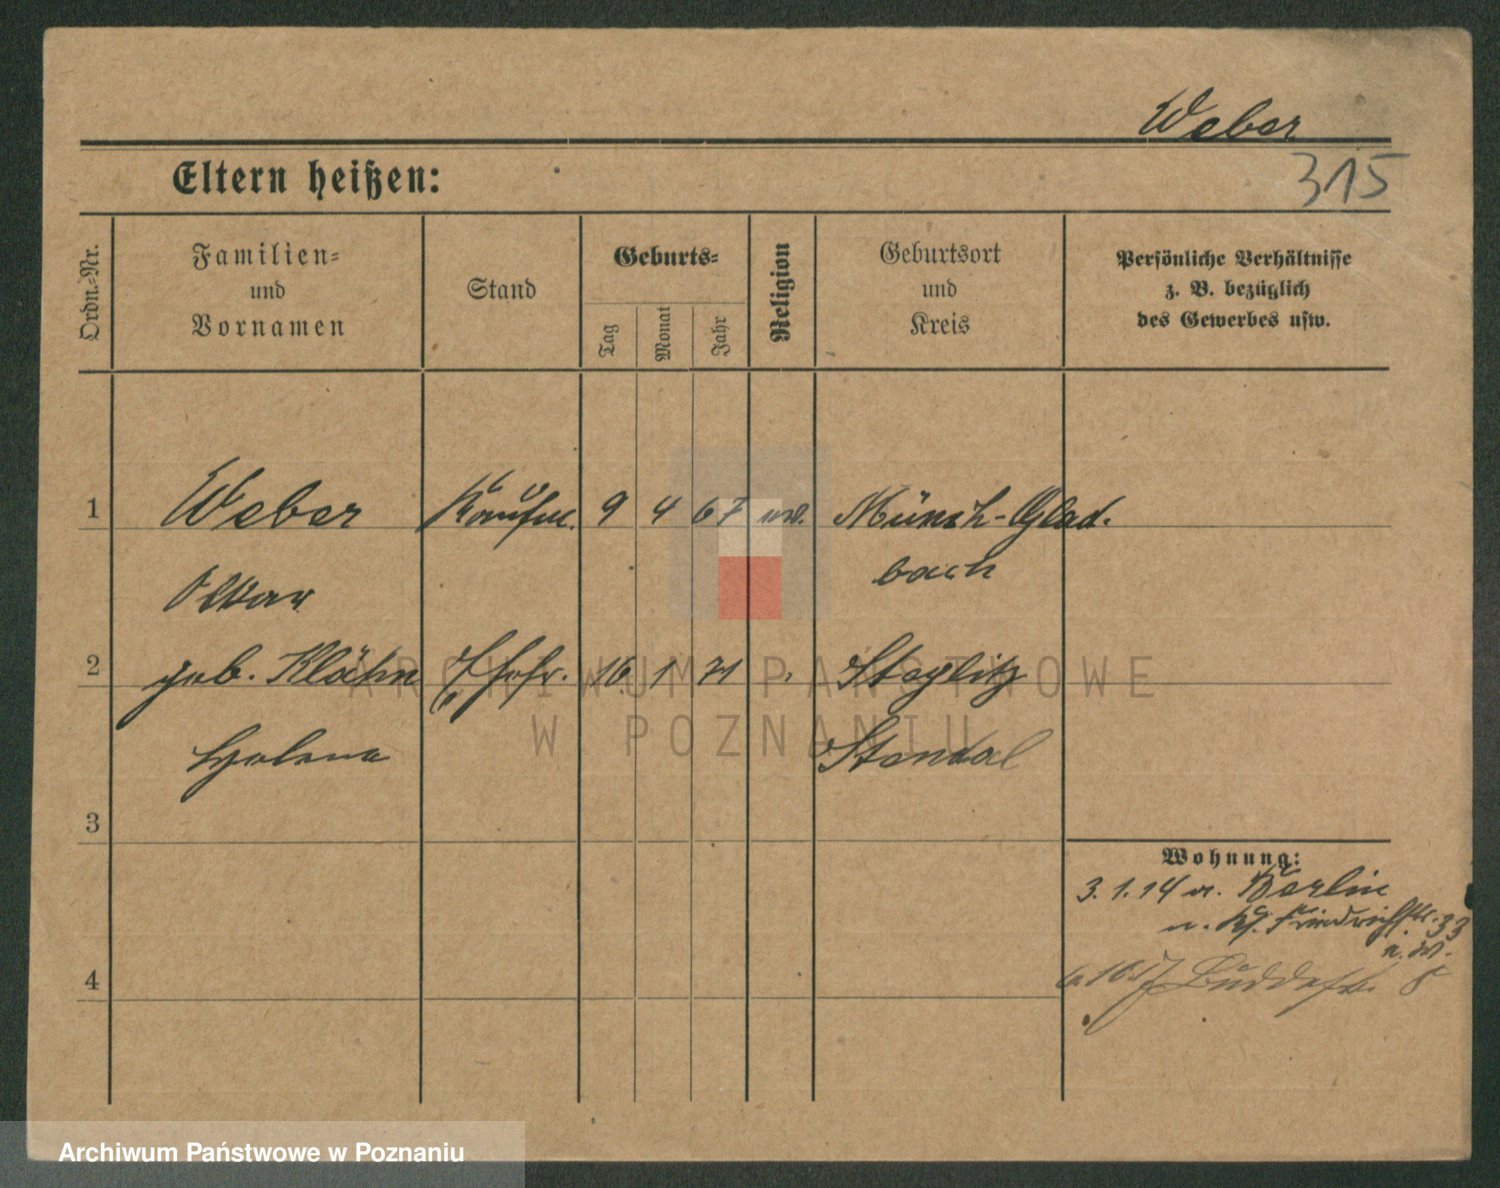 Weber
315
Eltern heißen:
Ordn.-Nr.
Familien-
und
Vornamen
Stand
Geburts-
Tag
Monat
Jahr
Religion
Geburtsort
und
Kreis
Persönliche Verhältnisse
z. B. bezüglich
des Gewerbes usw.
1
Weber Kaufm. 9 4 67 ev. Münch-Glad.
bach
Oskar
2
geb. Klähn Ehefr. 16 1 71 Steglitz
Helene Stendal
3
Wohnung:
3.1.14 a. Berlin
n. Kg. Friedrichstr. 33
n. W.
4
Buddestr. 8
ARCHIWUM PAŃSTWOWE
W POZNANIU
Archiwum Państwowe w Poznaniu